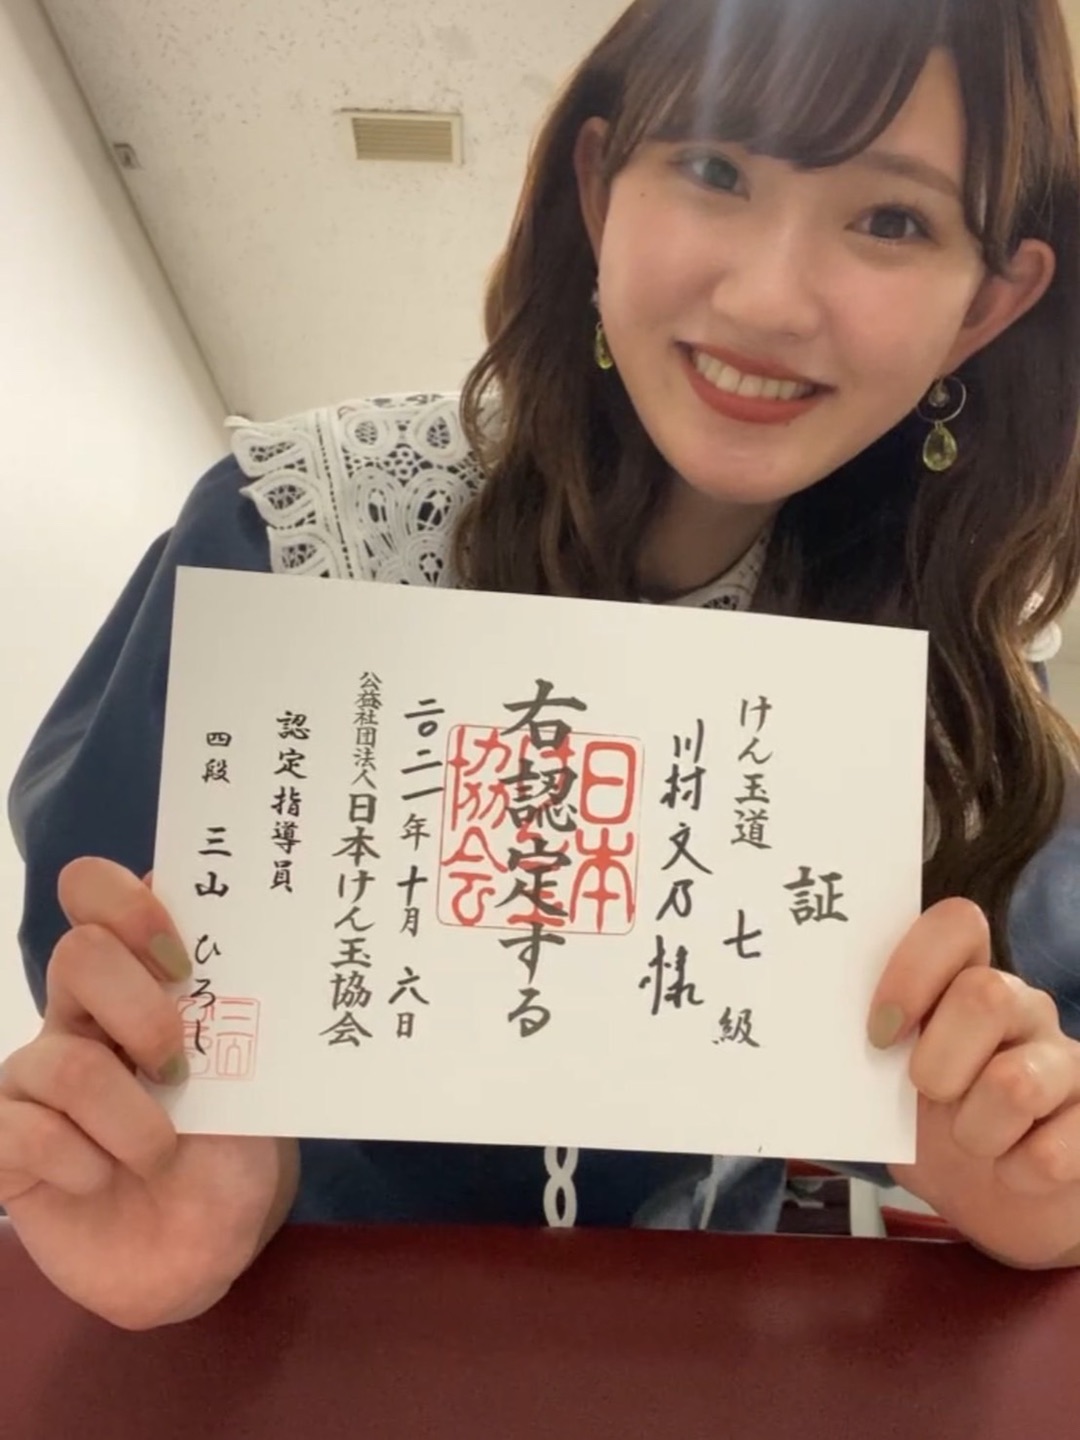 証
けん玉道 七 級
川村文乃様
右認定する
日本けん玉協会
二〇二一年十月六日
公益社団法人日本けん玉協会
認定指導員
四段 三山 ひろし